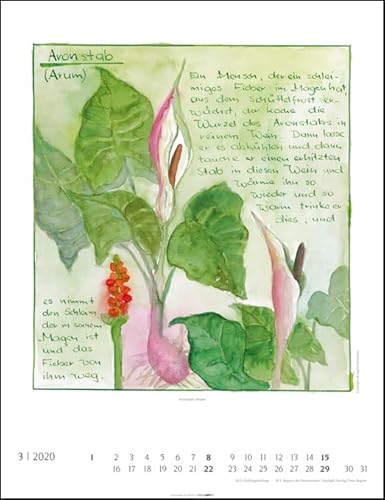 Aronstab
(Arum)
Ein Mensch, der ein schlei-
miges Fieber im Magen hat,
aus dem Schüttelfrost er-
wächst, der koche die
Wurzel des Aronstabs in
reinem Wein. Dann lasse
er es abkühlen und dann
tauche er einen erhitzten
Stab in diesen Wein und
wärme ihn so
wieder und so
warm trinke er
dies, und
es nimmt
den Schleim,
der in seinem
Magen ist
und das
Fieber von
ihm weg.
3 | 2020
1 2 3 4 5 6 7 8 9 10 11 12 13 14 15
16 17 18 19 20 21 22 23 24 25 26 27 28 29 30 31